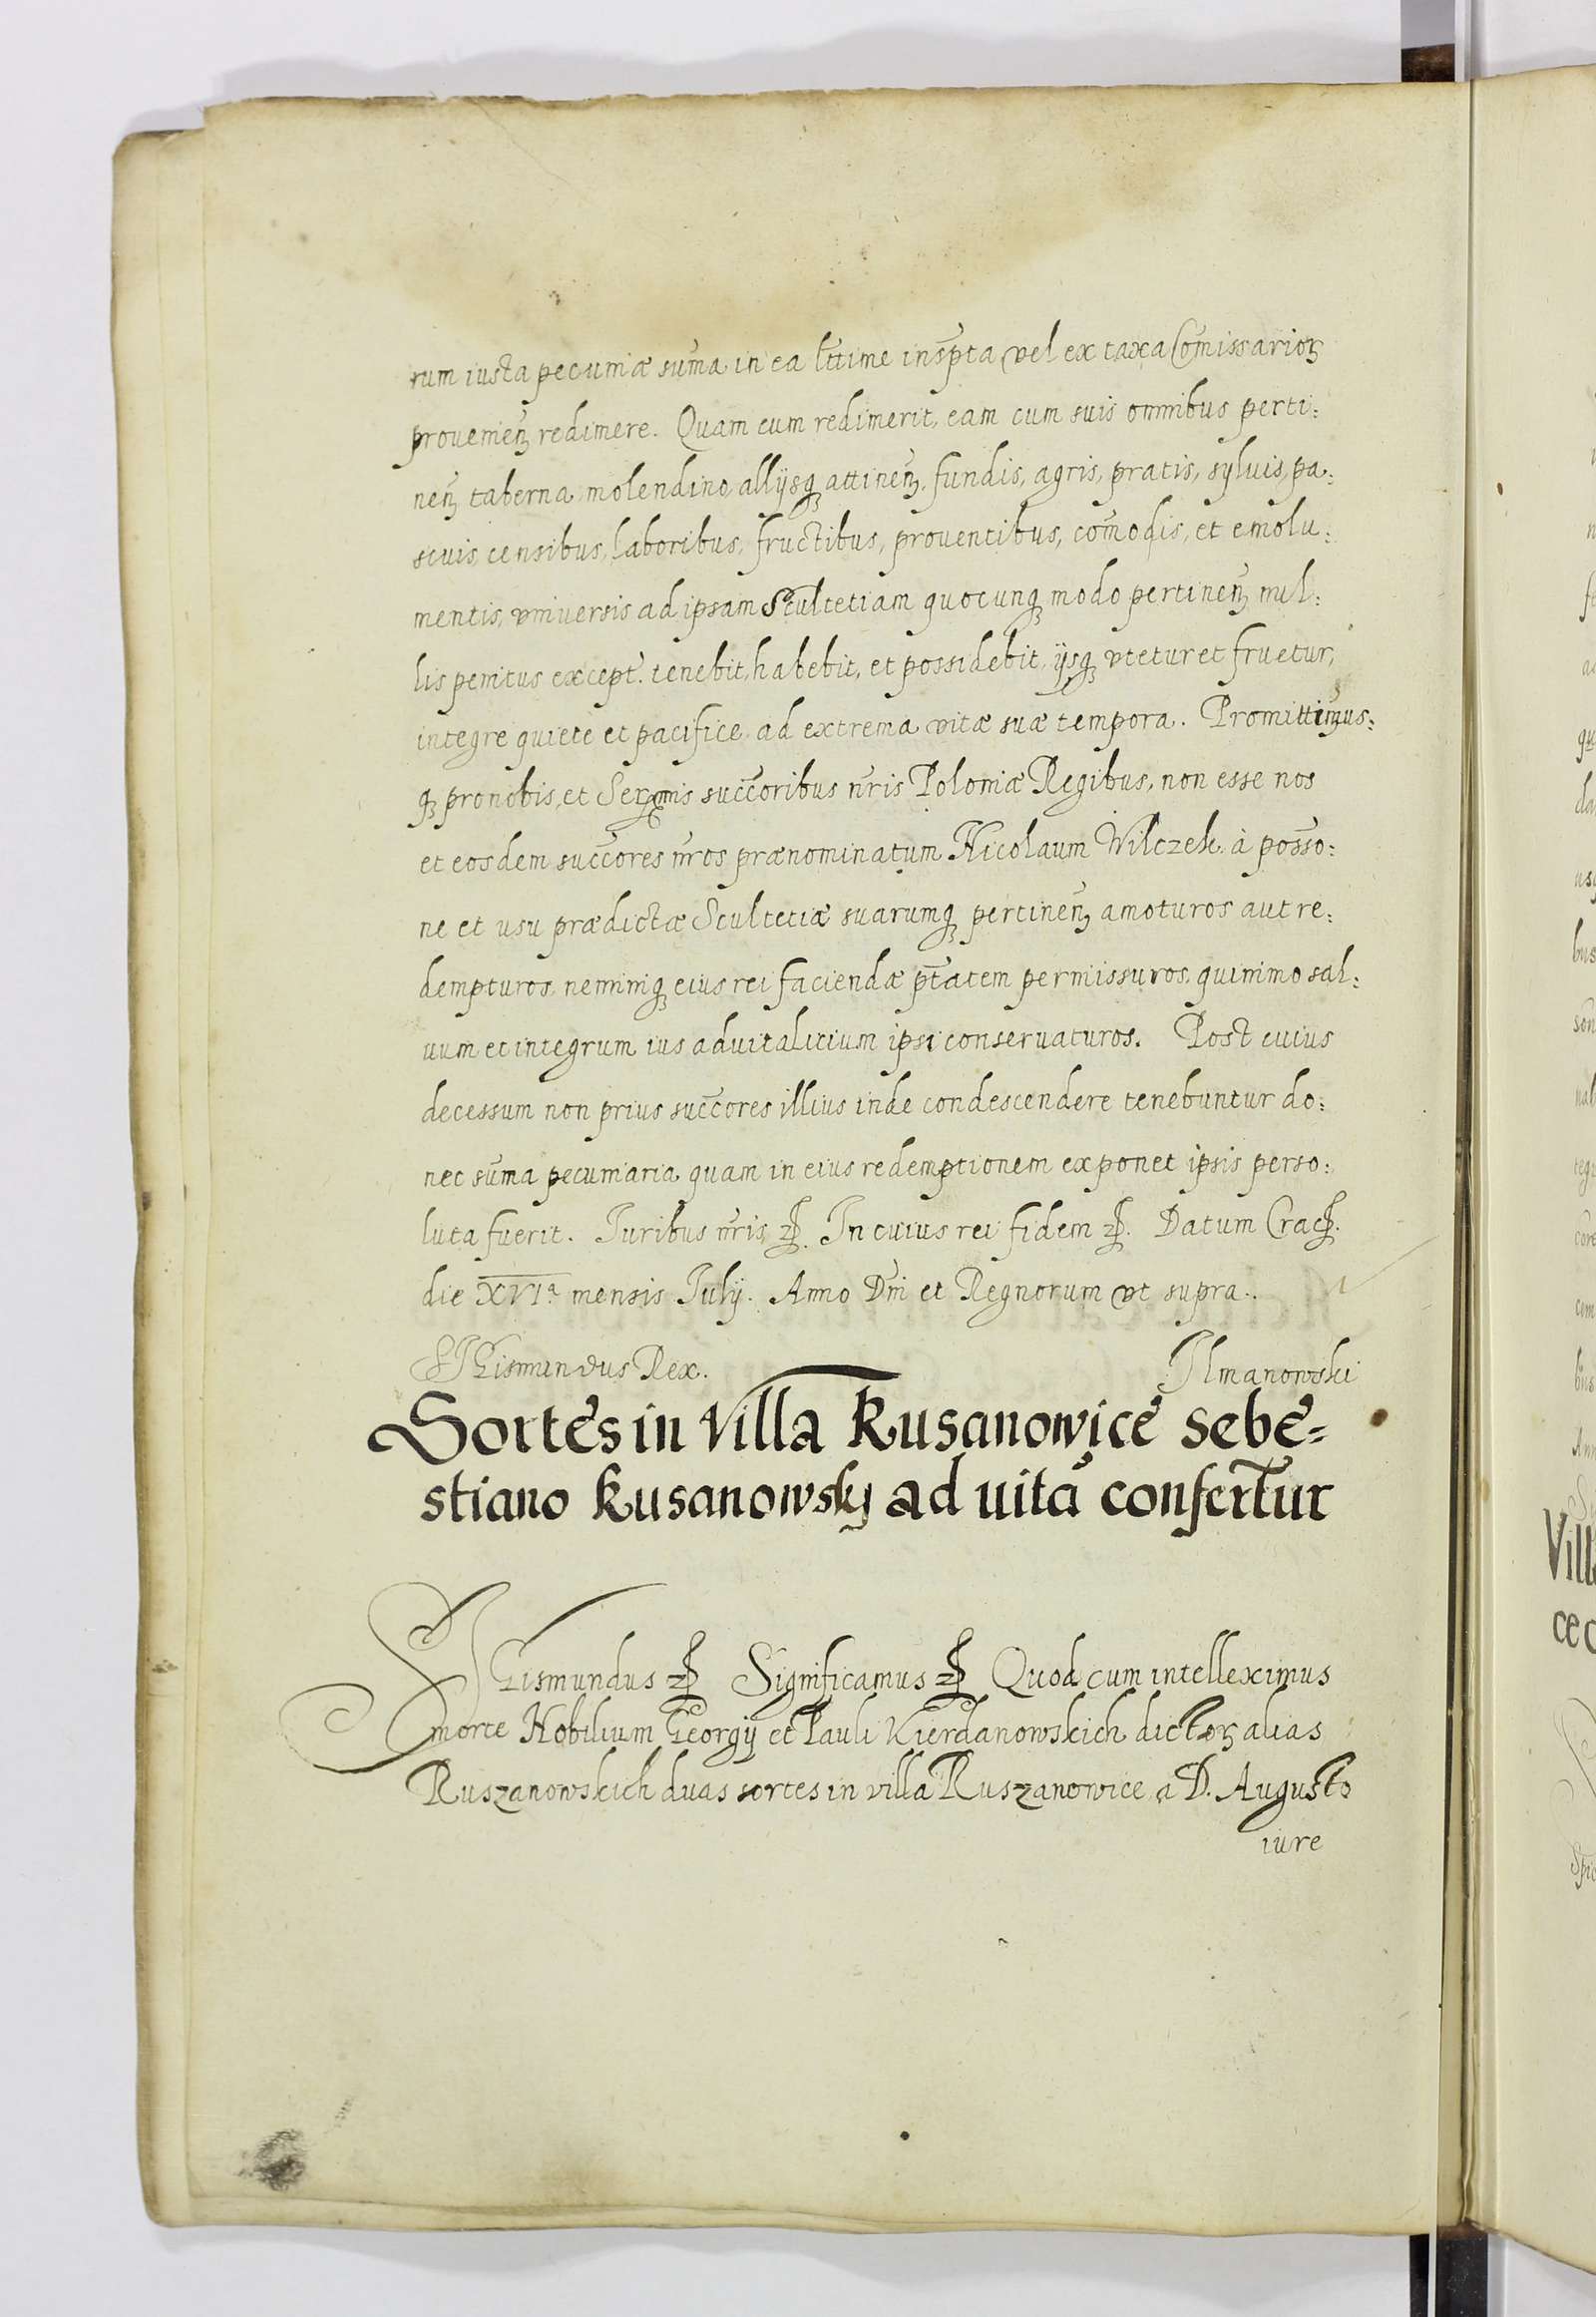 rum iusta pecuniæ sum̃a in ea lr̃time inscp̃ta vel ex taxa Com̃issarioꝝ
prouenieñ redimere. Quam cum redimerit, eam cum suis omnibus perti:
neñ taberna molendino, alijsqꝫ attineñ. fundis, agris, pratis, syluis, pa:
scuis, censibus, laboribus, fructibus, prouentibus, com̃odis, et emolu:
mentis, vniuersis ad ipsam Scultetiam quocunqꝫ modo pertineñ nul:
lis penitus except. tenebit, habebit, et possidebit, ijsqꝫ vtetur et fruetur,
integre quiete et pacifice ad extrema vitæ suæ tempora. Promittimus:
qꝫ pro nobis, et Serẽnis succ̃oribus nr̃is Poloniæ Regibus, non esse nos
et eosdem succ̃ores nr̃os prænominatum Nicolaum Wilczek à poss̃o:
ne et usu prædictæ Scultetiæ suarumqꝫ pertineñ amoturos aut re:
dempturos, neminiqꝫ eius rei faciendæ pt̃atem permissuros, quinimo sal:
uum et integrum ius aduitalitium ipsi conseruaturos. Post cuius
decessum non prius succ̃ores illius inde condescendere tenebuntur do:
nec sum̃a pecuniaria quam in eius redemptionem exponet ipsis perso:
luta fuerit. Iuribus nr̃is ꝛꝭ. In cuius rei fidem ꝛꝭ. Datum Cracꝭ.
die XVIa mensis Iulij. Anno Dñi et Regnorum vt supra.
SIGismundus Rex. Ilmanowski
Sortes in villa Kusanowice Sebe=
stiano Kusanowsky ad uitã confertur
SIGismundus ꝛꝭ Significamus ꝛꝭ Quod cum intelleximus
morte Nobilium Georgij et Pauli Kierdanowskich dictoꝝ alias
Ruszanowskich duas sortes in villa Ruszanowice a D. Augusto
iure